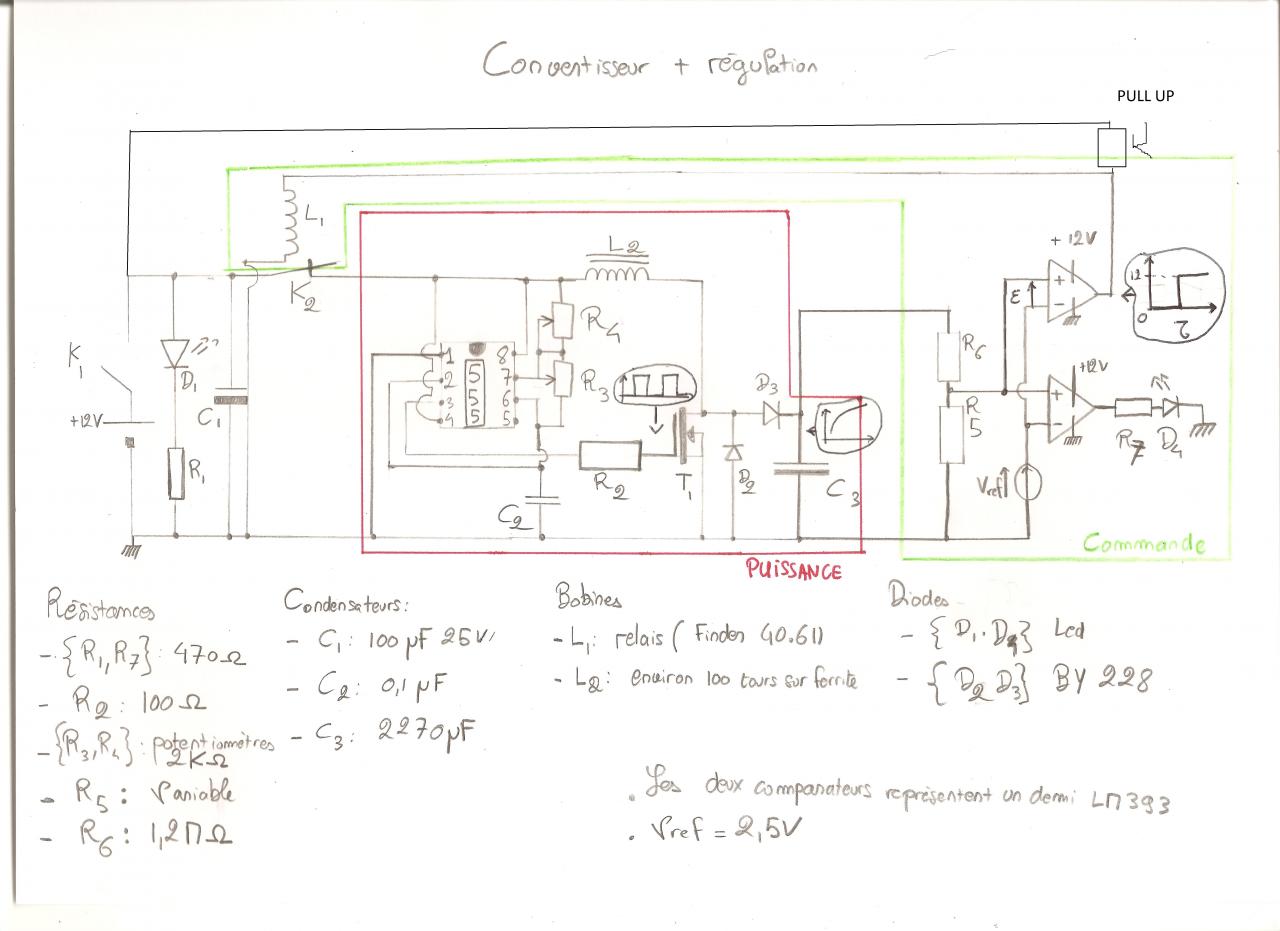 Convertisseur + régulation
PULL UP
L1
K2
L2
R4
R3
K1
+12V
D1
C1
R1
1 8
2 7
3 6
4 5
5
5
5
R2
C2
T1
D3
D2
C3
R6
R5
+12V
ε
12
0
τ
+12V
R7 D4
Vref
Commande
PUISSANCE
Résistances
- {R1, R7} : 470Ω
- R2 : 100Ω
- {R3, R4} : potentiomètres
2KΩ
- R5 : Variable
- R6 : 1,2MΩ
Condensateurs :
- C1 : 100 µF 25V
- C2 : 0,1 µF
- C3 : 2270µF
Bobines
- L1 : relais ( Finder 40.61)
- L2 : environ 100 tours sur ferrite
Diodes
- {D1. D4} Led
- {D2 D3} BY 228
. Les deux comparateurs représentent un demi LM393
. Vref = 2,5V